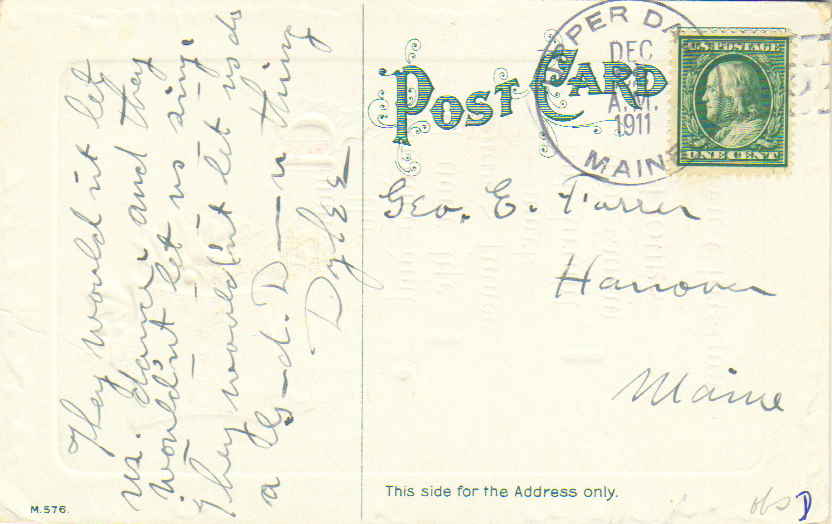 They would nt let
us. dance. and they
would'nt let us sing.
They would'nt let us do
a G—d. D——n thing
POST CARD
UPPER DA
DEC
A.M.
1911
MAINE
U.S. POSTAGE
ONE CENT
Geo. E. Farrer
Hanover
Maine
This side for the Address only.
M.576.
obs D